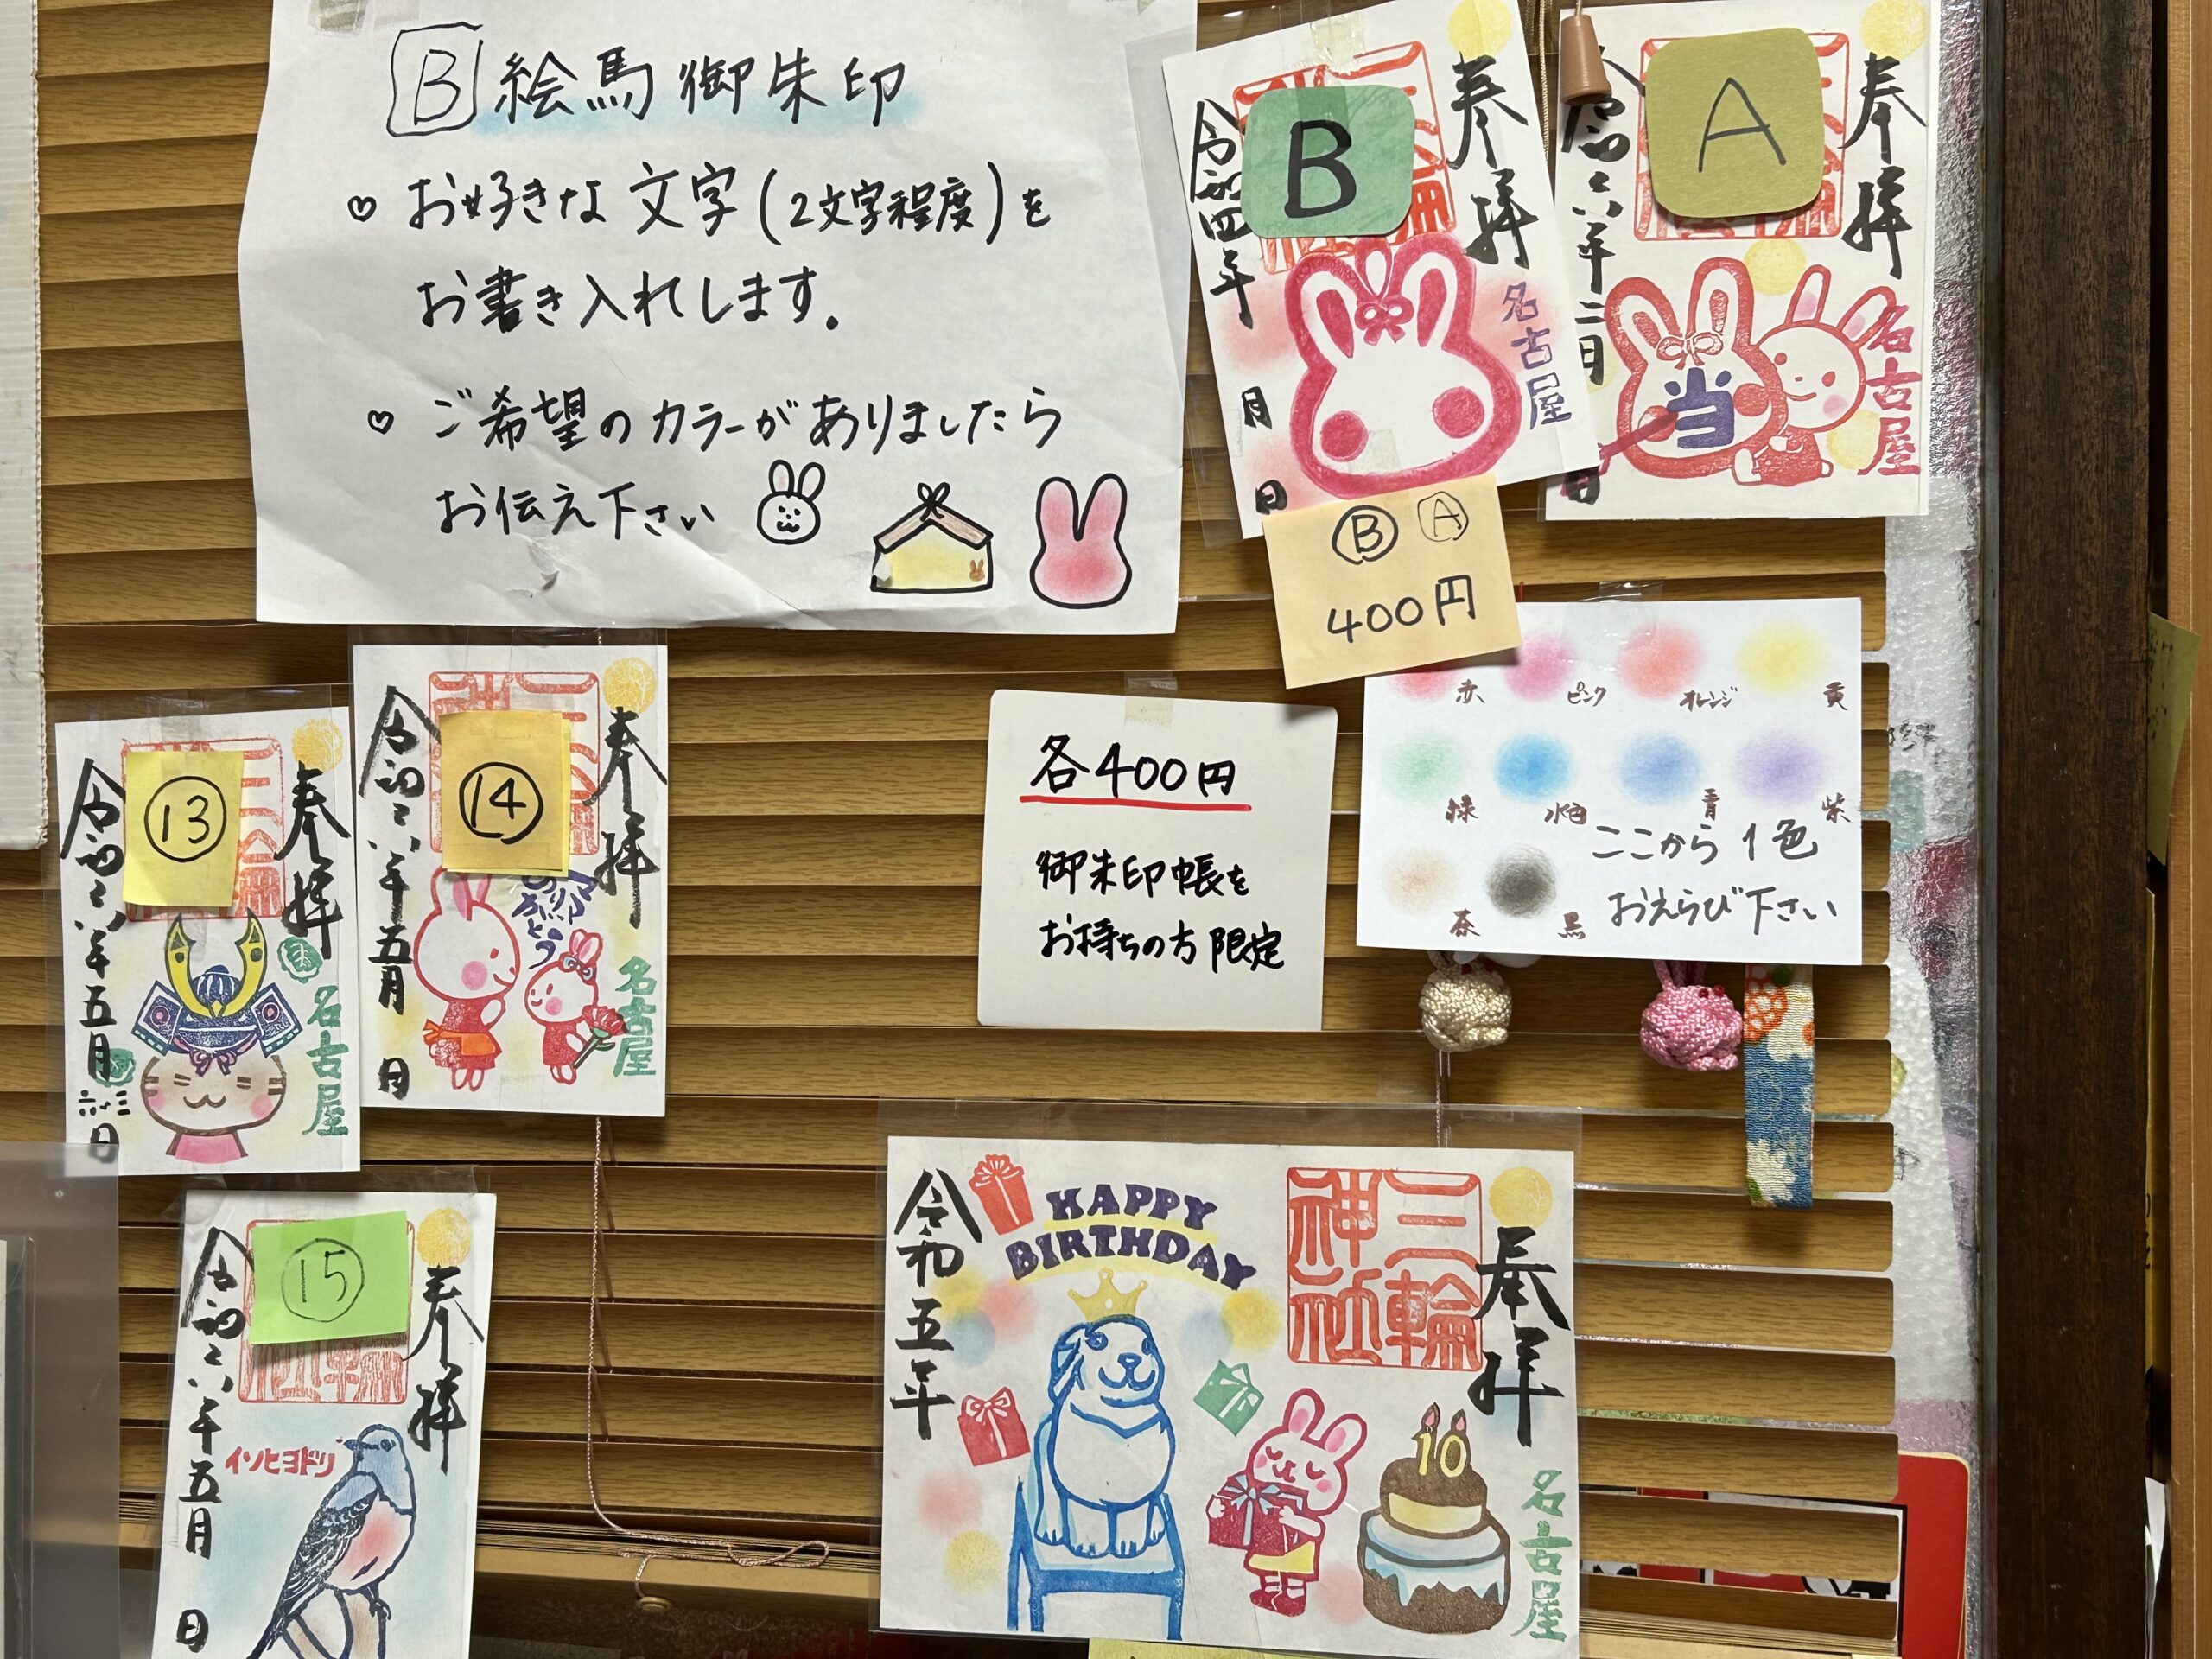 B 絵馬御朱印
♡ お好きな文字(2文字程度)を
お書き入れします。
♡ ご希望のカラーがありましたら
お伝え下さい
B
奉拝
名古屋
令和四年
月
日
A
奉拝
名古屋
当
令和六年二月
日
Ⓑ Ⓐ
400円
赤 ピンク オレンジ 黄
緑 水色 青 紫
茶 黒
ここから1色
おえらび下さい
各400円
御朱印帳を
お持ちの方限定
⑬
奉拝
名古屋
令和六年五月
日
⑭
奉拝
名古屋
ありがとう
令和六年五月
日
⑮
奉拝
イソヒヨドリ
令和六年五月
日
奉拝
三輪
神社
名古屋
HAPPY
BIRTHDAY
10
令和五年